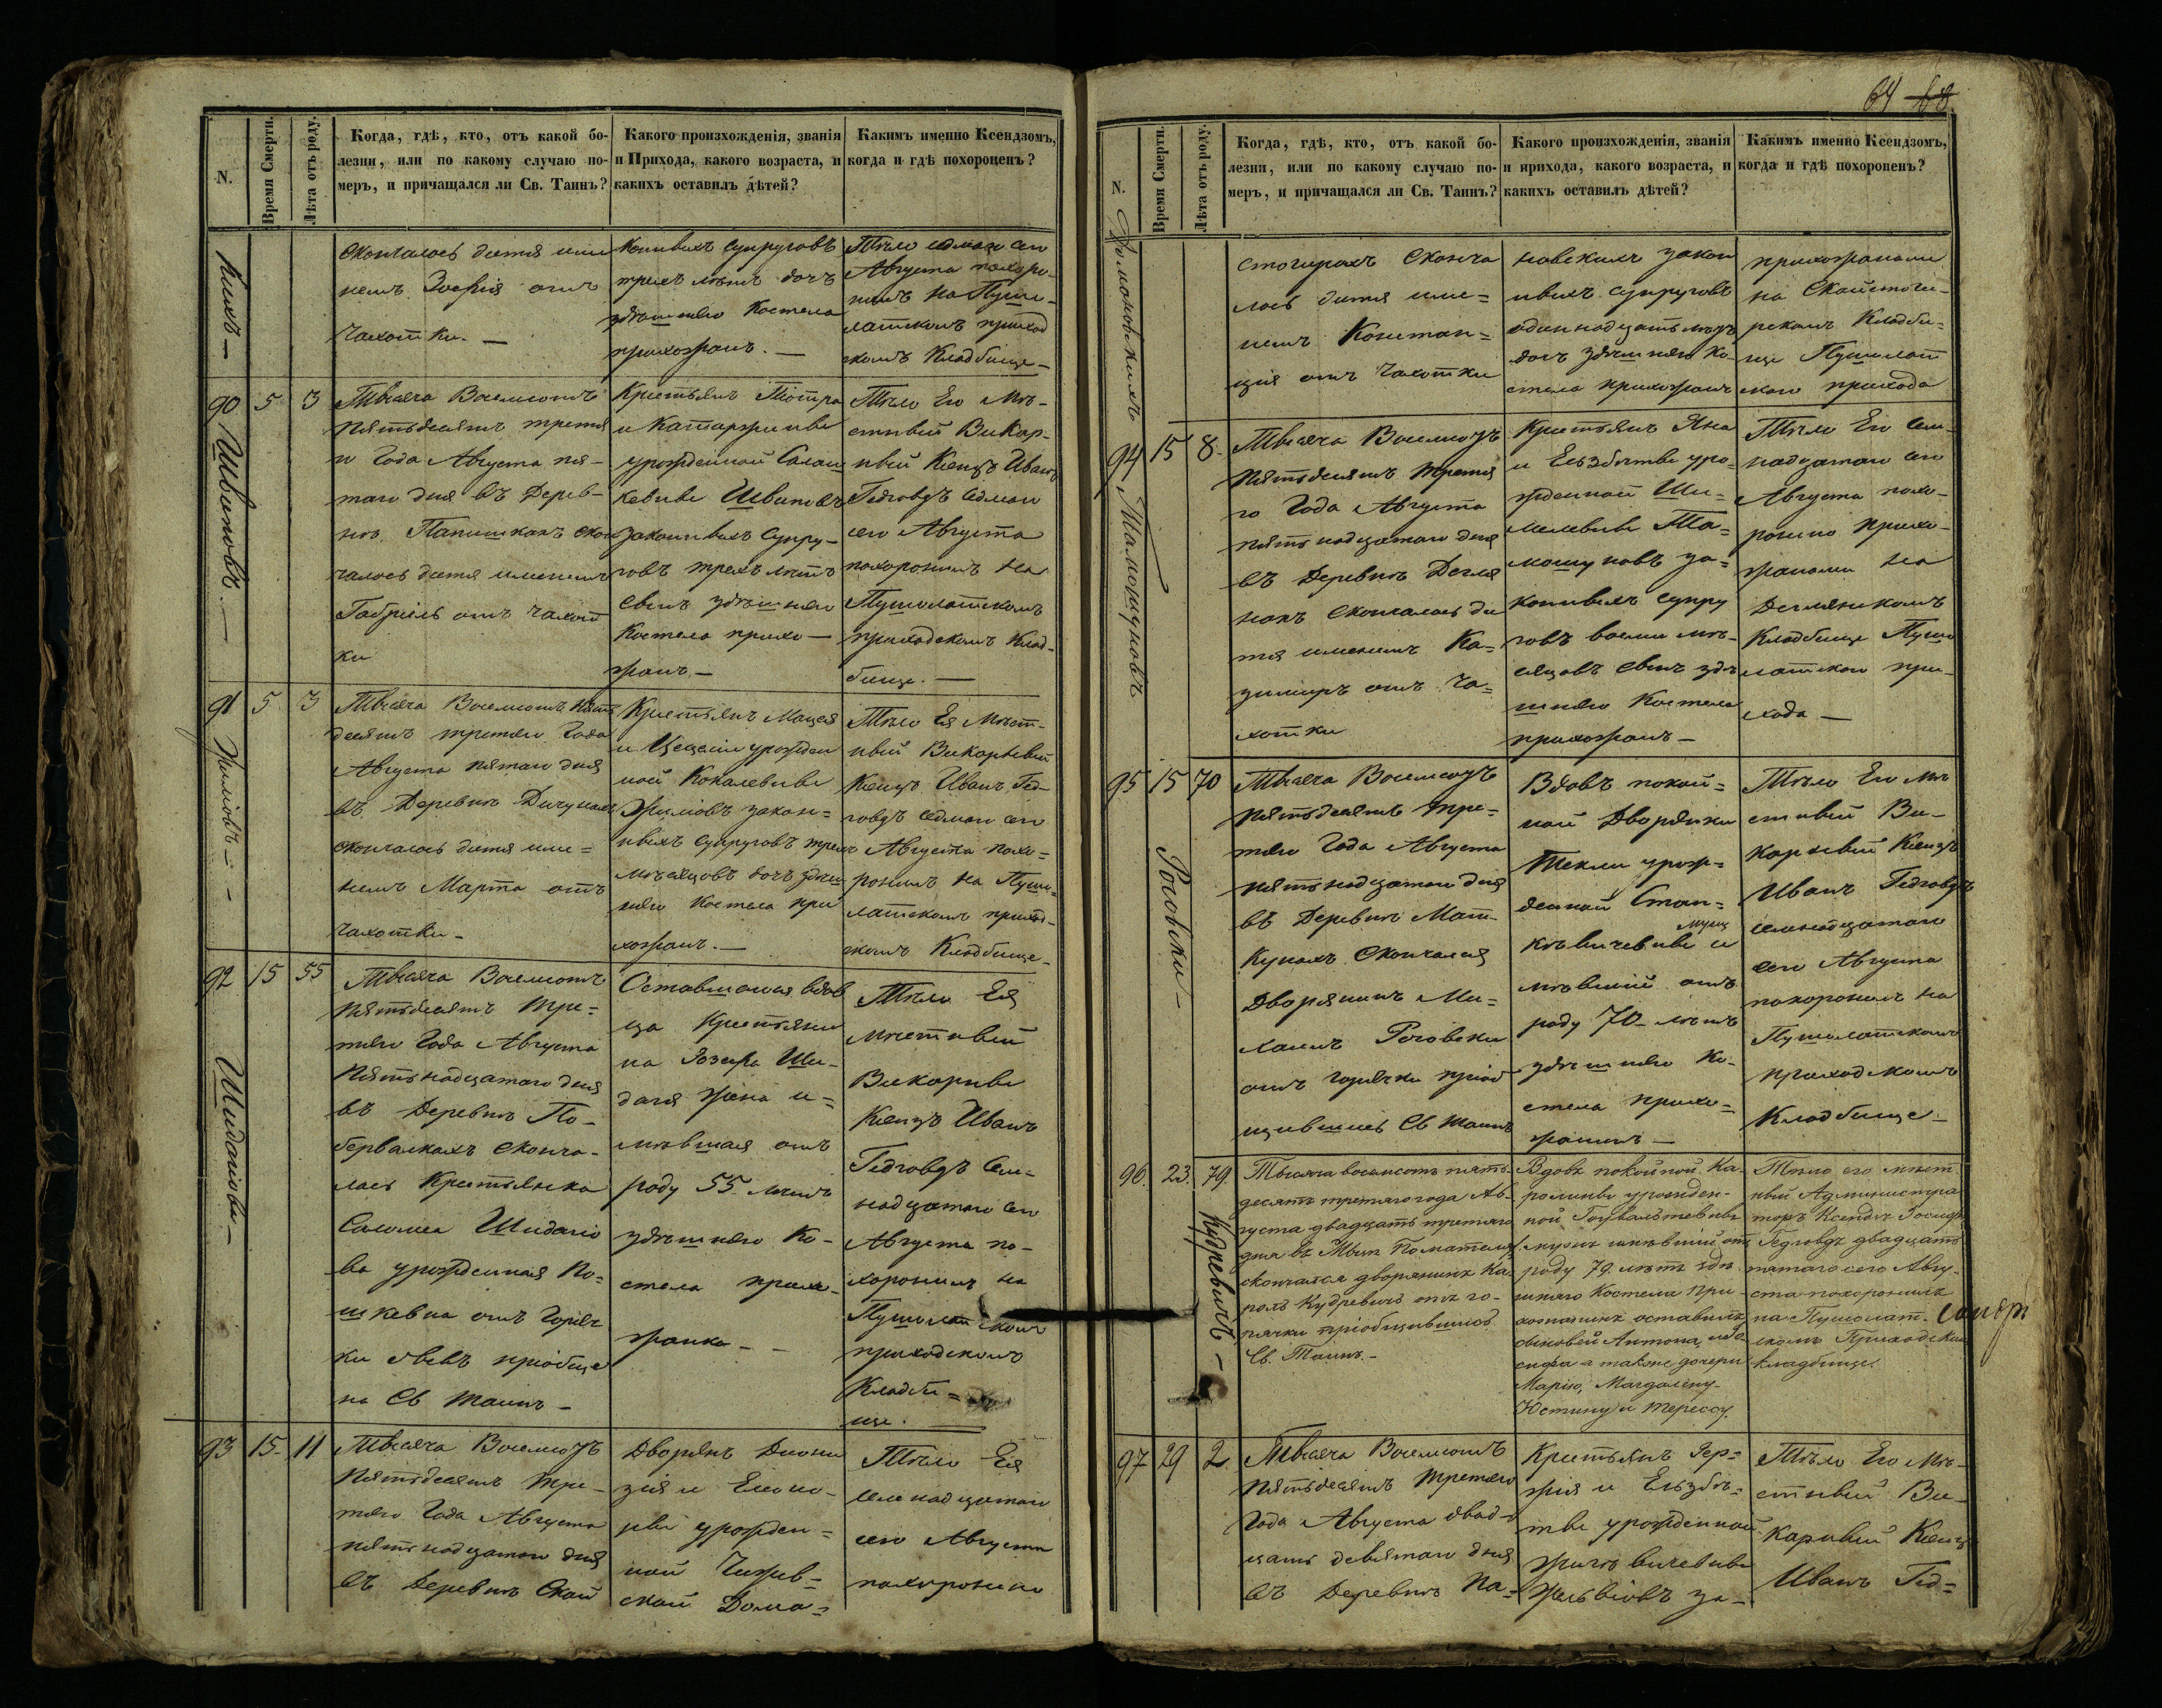 N.
Время Смерти.
Лѣта отъ роду.
Когда, гдѣ, кто, отъ какой бо-
лезни, или по какому случаю по-
меръ, и причащался ли Св. Таинъ?
Какого произхожденія, званія
и Прихода, какого возраста, и
какихъ оставилъ дѣтей?
Какимъ именно Ксендзомъ,
когда и гдѣ похороненъ?
скончалось дитя име
немъ Зосфія отъ
чахотки. —
конныхъ супруговъ
трехъ лѣтъ дочь
здѣшняго Костела
прихожанъ. —
Тѣло седмаго сего
Августа похоро-
нилъ на Пуши-
латскомъ приход
скомъ Кладбище —
90
5
3
Тысяча Восемсотъ
пятьдесятъ третья
го Года Августа пя-
таго дня въ Дерев-
нѣ Папишкахъ скон
чалось дитя именемъ
Габріель отъ чахот
ки
Крестьянъ Піотра
и Катаржины
урожденной
Швиповъ
законныхъ Супру-
говъ трехъ лѣтъ
сынъ здѣшняго
Костела прихо-
жанъ —
Тѣло Его Мѣ-
стный Викар-
ный Ксендзъ Иванъ
Гедговдъ седмаго
сего Августа
похоронилъ на
Пушолатскомъ
приходскомъ Клад-
бище. —
91
5
3
Тысяча Восемсотъ пять
десятъ третяго Года
Августа пятаго дня
въ Деревнѣ
скончалось дитя име=
немъ Марта отъ
чахотки —
Крестьянъ Мацея
и Цецеліи урожден
ной
законныхъ супруговъ трехъ
мѣсяцовъ дочь здѣш
няго Костела при
хожанъ. —
Тѣло Ея Мѣст-
ный Викарный
Ксендзъ Иванъ Гед-
говдъ седмаго сего
Августа похо=
ронилъ на Пуши-
латскомъ приход-
скомъ Кладбище —
92
15
55
Тысяча Восемсотъ
пятьдесятъ тре=
тяго Года Августа
пятьнадцатаго дня
въ Деревнѣ По-
бервалкахъ сконча-
лась Крестьянка
Саломея Шидагіо
ва урожденная По=
шкевна отъ Горяч
ки бывъ пріобще
на Св Таинъ —
Оставшаяся вдов
ца Крестьяни
на Іозефа Ши-
дагія жена и=
мѣвшая отъ
роду 55 лѣтъ
здѣшняго Ко-
стела прихо-
жанка —
Тѣло Ея
Мѣстный
Викарный
Ксендзъ Иванъ
Гедговдъ Сем-
надцатаго сего
Августа по-
хоронилъ на
Пушолатскомъ
приходскомъ
Кладби=
ще.
93
15.
11
Тысяча Восемсотъ
пятьдесятъ тре-
тяго Года Августа
пятьнадцатаго дня
въ Деревнѣ Скай
Дворянъ Діони
зія и Елено-
ры урожден=
ной Чижев=
ской Дома=
Тѣло Ея
семнадцатаго
сего Августа
похоронено
64 68
N.
Время Смерти.
Лѣта отъ роду.
Когда, гдѣ, кто, отъ какой бо-
лезни, или по какому случаю по-
меръ, и причащался ли Св. Таинъ?
Какого произхожденія, званія
и прихода, какого возраста, и
какихъ оставилъ дѣтей?
Какимъ именно Ксендзомъ,
когда и гдѣ похороненъ?
Домоновскихъ
стогирахъ Сконча
лось дитя име=
немъ Констан=
ція отъ чахотки
новскихъ закон
ныхъ супруговъ
одиннадцать лѣтъ
дочь здѣшняго Ко-
стела прихожанъ
прихожанами
на Скайстоги-
рскомъ Кладби=
ще Пушолат
скаго прихода
94
15
8.
Тамошуновъ
Тысяча Восемсотъ
пятьдесятъ третья
го Года Августа
пятьнадцатаго дня
въ Деревнѣ Дегля
нахъ скончалось ди
тя именемъ Ка=
зимиръ отъ ча=
хотки
Крестьянъ Яна
и Ельзбѣты уро-
жденной Ши=
Та=
мошуновъ за=
конныхъ супру
говъ восми мѣ-
сяцовъ сынъ здѣ
шняго Костела
прихожанъ —
Тѣло Его Сем-
надцатаго сего
Августа похо-
ронено прихо-
жанами на
Деглянскомъ
Кладбище Пушо
латскаго при-
хода —
95
15
70
Роговски —
Тысяча Восемсотъ
пятьдесятъ тре=
тяго Года Августа
пятьнадцатаго дня
въ Деревнѣ Мат-
кунахъ Скончался
Дворянинъ Ми=
халъ Роговски
отъ горячки пріоб
щившись Св Таинъ
Вдовъ покой=
ной Дворянки
Текли урож=
денной Стан-
кѣвичевны мужъ и
мѣвшій отъ
роду 70 лѣтъ
здѣшняго Ко-
стела прихо=
жанинъ —
Тѣло Его Мѣ
стный Ви-
карный Ксендзъ
Иванъ Гедговдъ
семнадцатаго
сего Августа
похоронилъ на
Пушолатскомъ
приходскомъ
Кладбище —
96.
23.
79.
Кудревичъ —
Тысяча восемсотъ пять-
десятъ третяго года Ав-
густа двадцать третяго
дня въ
скончался дворянинъ Ка-
роль Кудревичъ отъ го-
рячки пріобщившись
Св. Таинъ. —
Вдовъ покойной Ка-
ролины урожден-
ной
мужъ имѣвшій отъ
роду 79. лѣтъ здѣ
шняго Костела при-
хожанинъ оставилъ
сыновей Антона, Іо
сифа а также дочери
Марію, Магдалену
Юстину и Терессу.
Тѣло его мѣст
ный Администра
торъ Ксендзъ Іосифъ
Гедговдъ двадцать
пятаго сего Авгу-
ста похоронилъ
на Пушолат-
скомъ Приходскомъ
кладбище.
97
29
2.
Тысяча Восемсотъ
пятьдесятъ третяго
Года Августа двад-
цать девятаго дня
въ Деревнѣ Па-
Крестьянъ Гер=
жія и Ельзбѣ=
ты урожденной
за-
Тѣло Его Мѣ-
стный Ви-
карный Ксендзъ
Иванъ Гед=